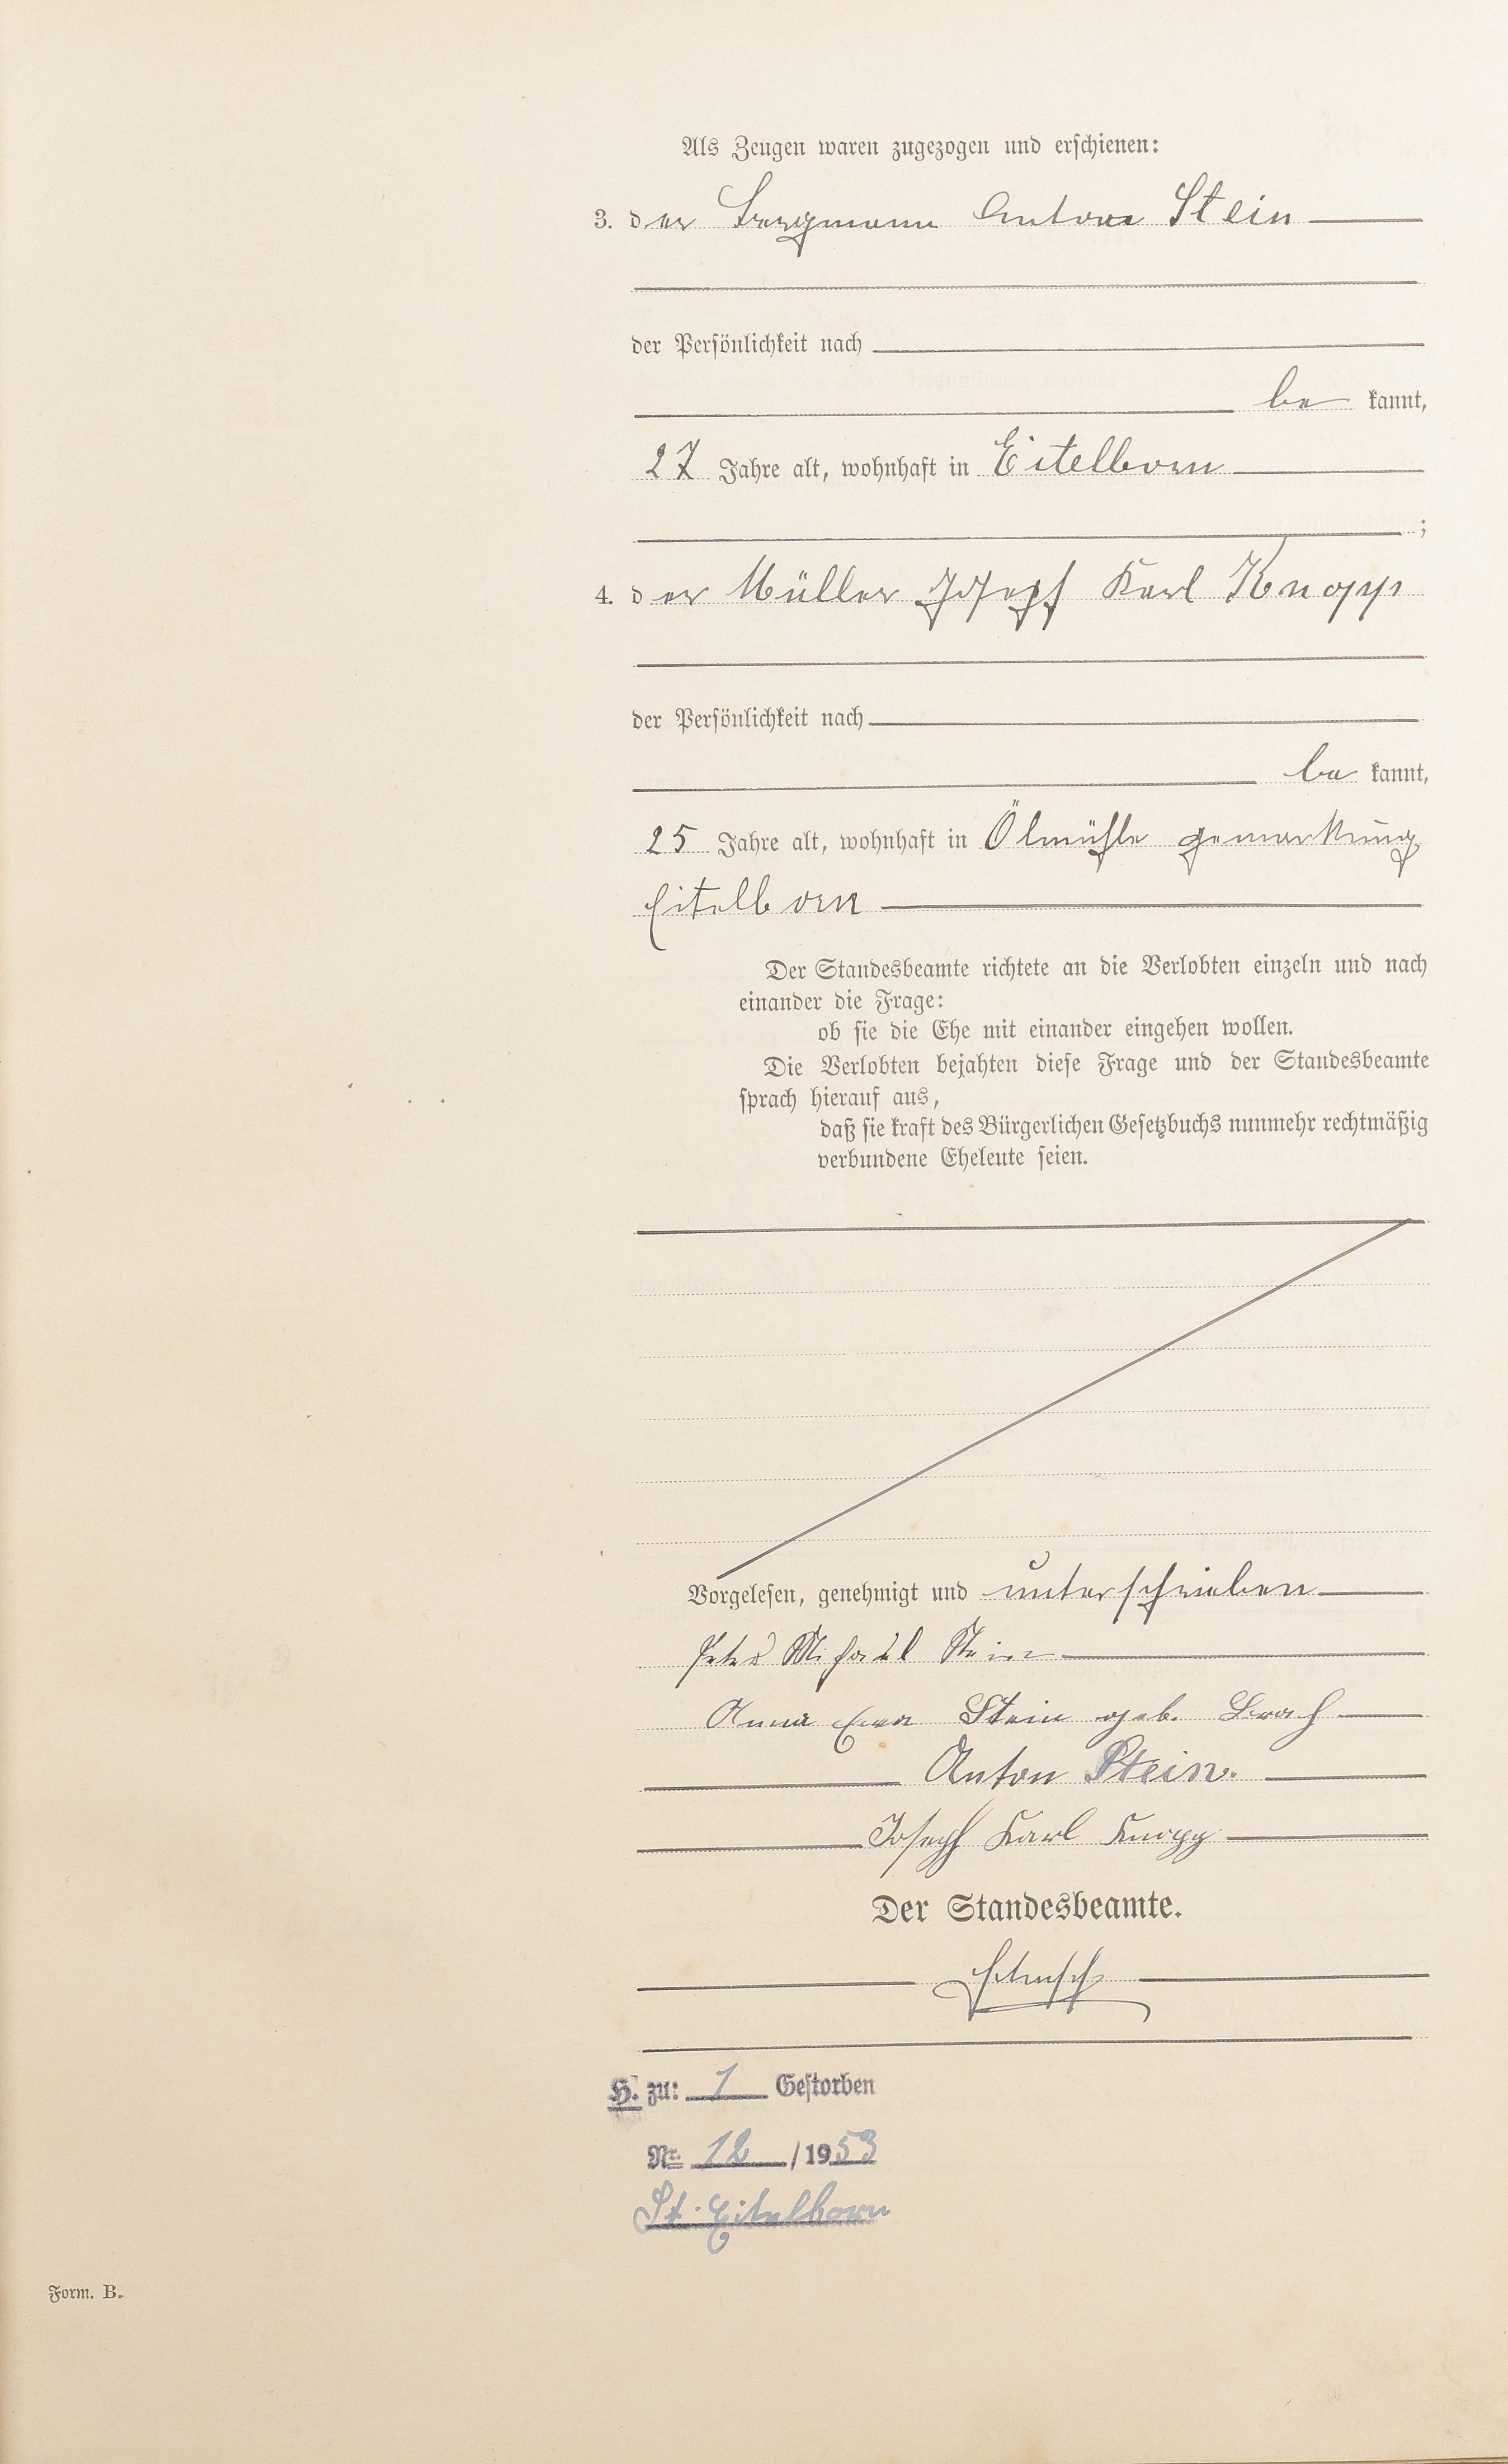 Als Zeugen waren zugezogen und erschienen:
3. der Bergmann Anton Stein
der Persönlichkeit nach
be kannt,
27 Jahre alt, wohnhaft in Eitelborn
;
4. der Müller Josef Karl Knopp
der Persönlichkeit nach
be kannt,
25 Jahre alt, wohnhaft in Ölmühle gemarkung
Eitelborn
Der Standesbeamte richtete an die Verlobten einzeln und nach
einander die Frage:
ob sie die Ehe mit einander eingehen wollen.
Die Verlobten bejahten diese Frage und der Standesbeamte
sprach hierauf aus,
daß sie kraft des Bürgerlichen Gesetzbuchs nunmehr rechtmäßig
verbundene Eheleute seien.
Vorgelesen, genehmigt und unterschrieben
Peter Michael Stein
Anna Eva Stein geb. Brach
Anton Stein.
Joseph Karl Knopp
Der Standesbeamte.
H. zu: 1 Gestorben
Nr. 12 / 1953
St. Eitelborn
Form. B.